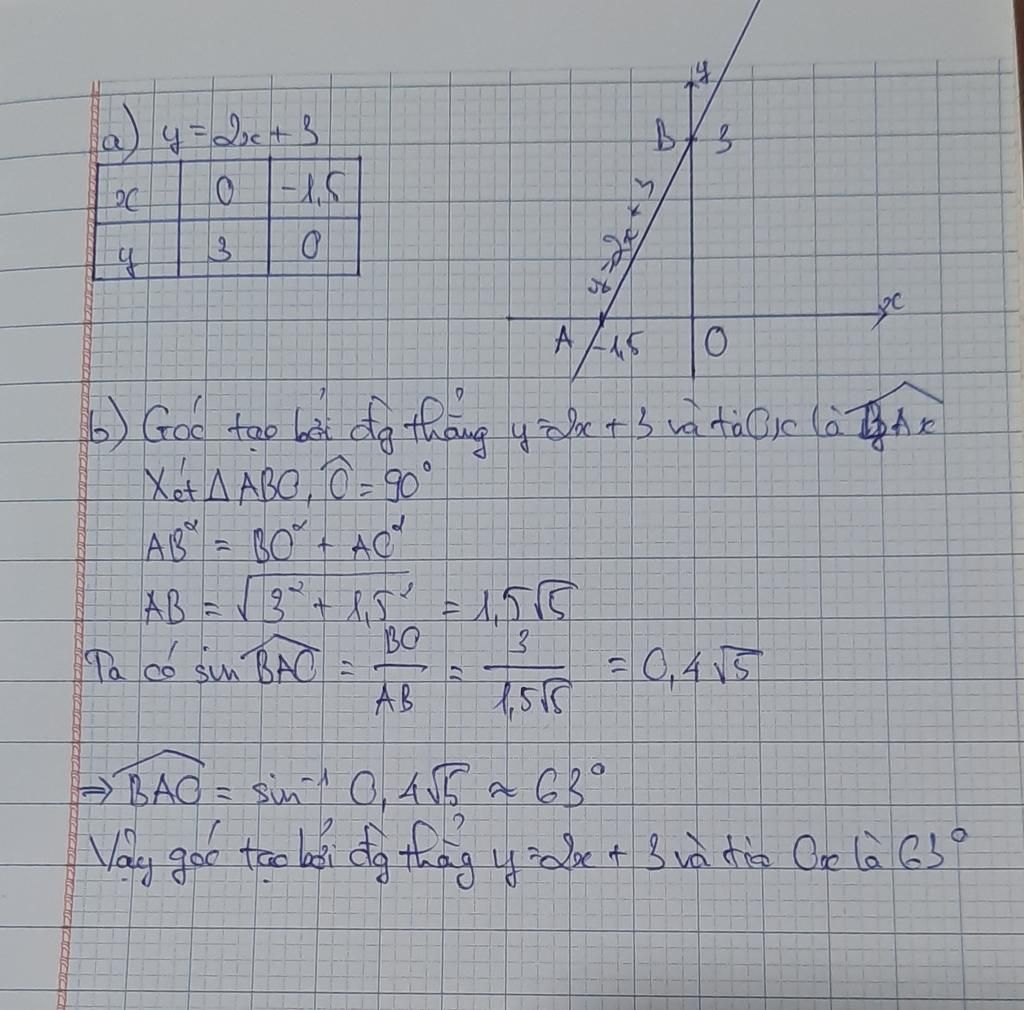 a) y = 2x + 3
x 0 -1,5
y 3 0
y
B 3
y=2x+3
x
A -1,5 O
b) Góc tạo bởi đg thẳng y=2x+3 và tia Ox là BAx
Xét ΔABO, Ô = 90°
AB² = BO² + AO²
AB = √3² + 1,5² = 1,5√5
Ta có sin BAO = BO/AB = 3/1,5√5 = 0,4√5
⇒ BAO = sin⁻¹ 0,4√5 ≈ 63°
Vậy góc tạo bởi đg thẳg y=2x + 3 và tia Ox là 63°